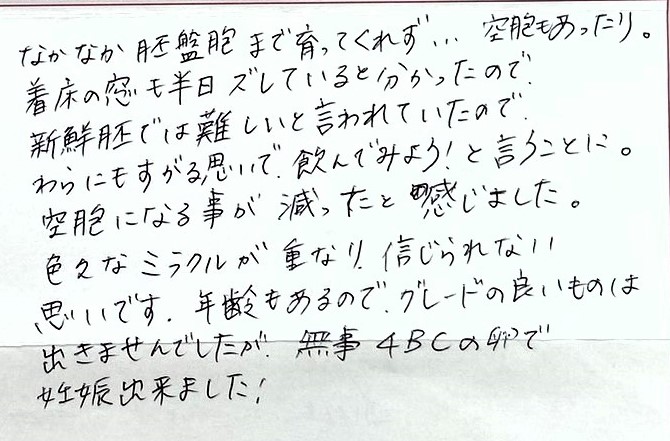 なかなか胚盤胞まで育ってくれず… 空胞もあったり。
着床の窓も半日ズレていると分かったので、
新鮮胚では難しいと言われていたので、
わらにもすがる思いで、飲んでみよう!と言うことに。
空胞になる事が減ったと感じました。
色々なミラクルが重なり、信じられない
思いです。年齢もあるので、グレードの良いものは
出きませんでしたが、無事4BCの卵で
妊娠出来ました!